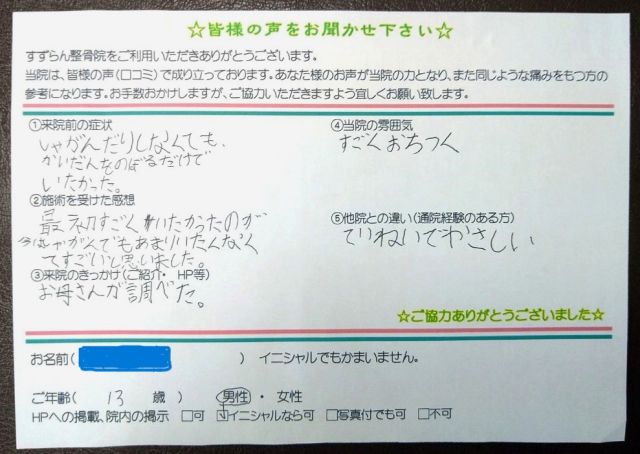 ☆皆様の声をお聞かせ下さい☆
すずらん整骨院をご利用いただきありがとうございます。
当院は、皆様の声(口コミ)で成り立っております。あなた様のお声が当院の力となり、また同じような痛みをもつ方の
参考になります。お手数おかけしますが、ご協力いただきますよう宜しくお願い致します。
①来院前の症状
しゃがんだりしなくても、
かいだんをのぼるだけで
いたかった。
②施術を受けた感想
最初すごくいたかったのが
今はしゃがんでもあまりいたくなく
てすごいと思いました。
③来院のきっかけ(ご紹介・ HP等)
お母さんが調べた。
④当院の雰囲気
すごくおちつく
⑤他院との違い(通院経験のある方)
ていねいでやさしい
☆ご協力ありがとうございました☆
お名前( ) イニシャルでもかまいません。
ご年齢( 13 歳 ) 男性 ・ 女性
HPへの掲載、院内の掲示 □可 ☑イニシャルなら可 □写真付でも可 □不可